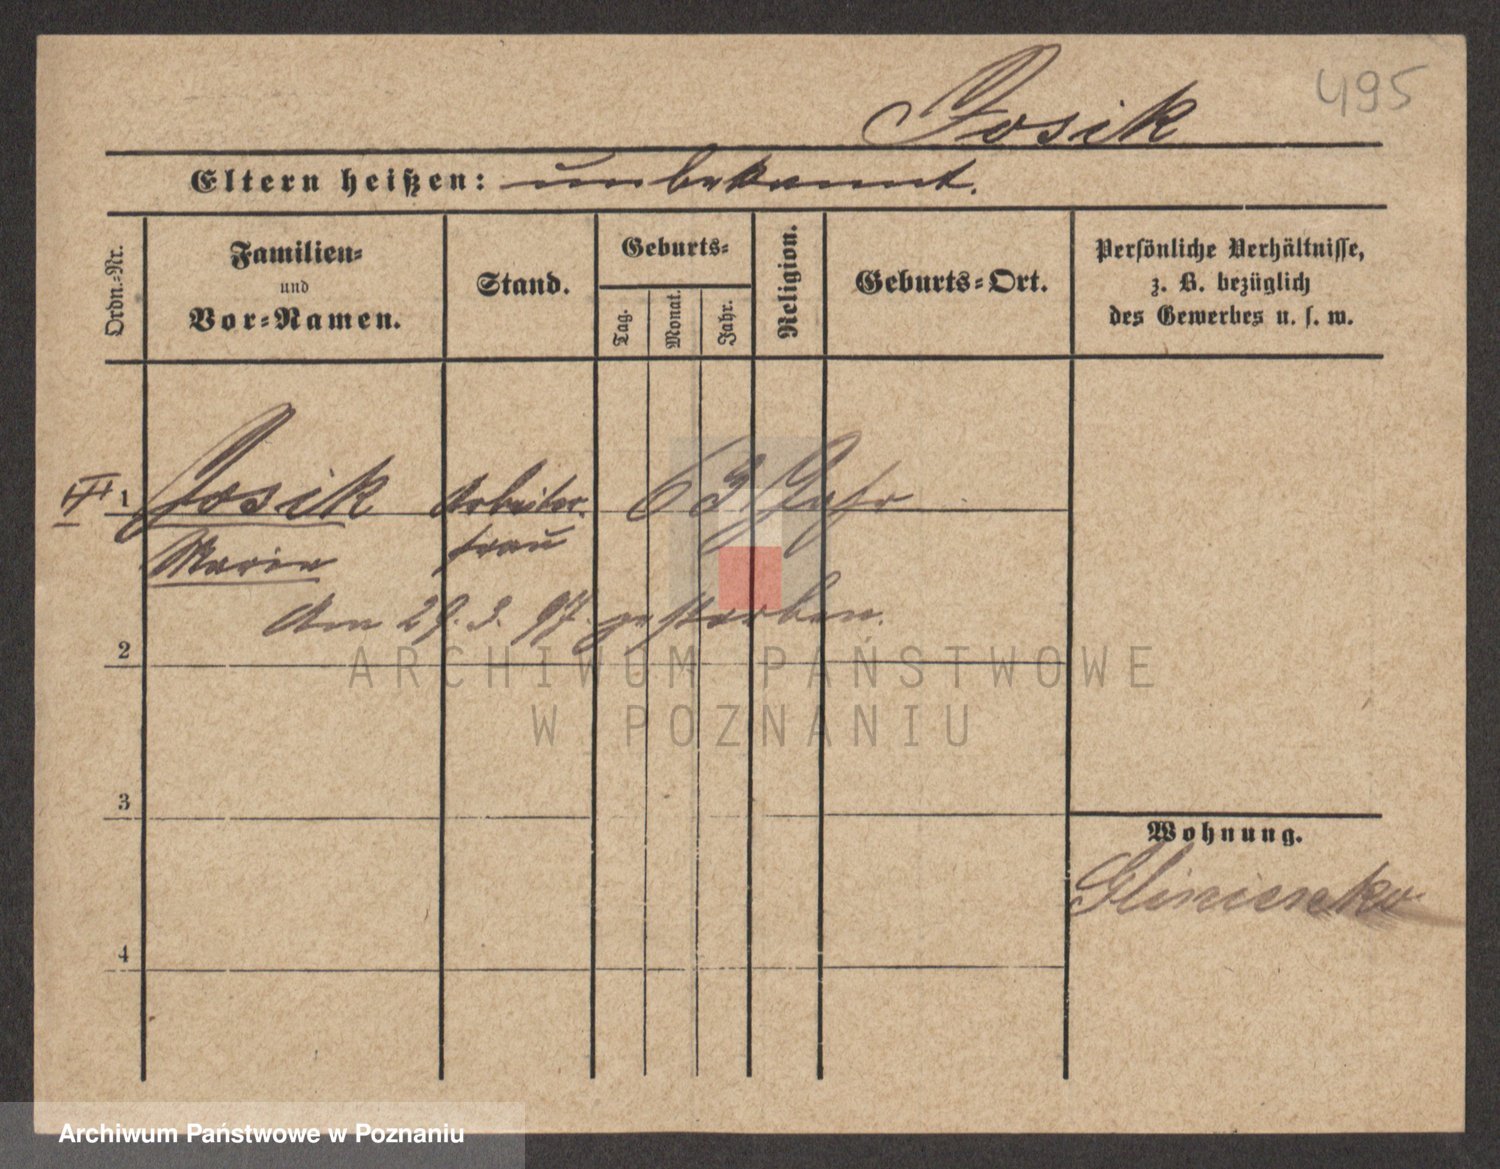 495
Josik
Eltern heißen: unbekannt.
Ordn.-Nr.
Familien-
und
Vor-Namen.
Stand.
Geburts-
Tag.
Monat.
Jahr.
Religion.
Geburts-Ort.
Persönliche Verhältnisse,
z. B. bezüglich
des Gewerbes u. s. w.
1 Josik Arbeiter- 63 Jahr
Maria frau
Am 29. 3. 97. gestorben.
2
ARCHIWUM PAŃSTWOWE
W POZNANIU
3
Wohnung.
Glinienko
4
Archiwum Państwowe w Poznaniu